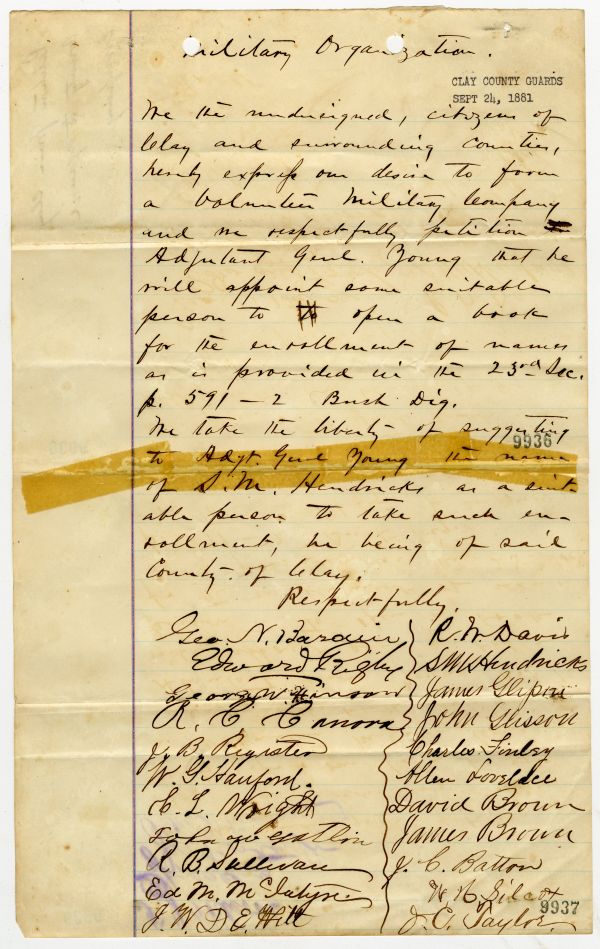 Military Organization.
CLAY COUNTY GUARDS
SEPT 24, 1881
We the undersigned, citizens of
Clay and surrounding counties,
hereby express our desire to form
a Volunteer Military Company
and we respectfully petition
Adjutant Genl. Young that he
will appoint some suitable
person to open a book
for the enrollment of names
as is provided in the 23rd Sec.
p. 591-2 Bush Dig.
We take the liberty of suggesting
9936
to Adjt. Genl Young the name
of S. M. Hendricks as a suit-
able person to take such en-
rollment, he being of said
County of Clay.
Respectfully,
Geo. N. R. W. Davis
Edward Rigby S M Hendricks
George James
R. C. John Glisson
J. B. Register Charles Finley
W. G. Hanford. Allen Lovelace
Wright David Brown
John James Brown
R. B. Sullivan J. C. Batton
Ed M. McIntyre W. H.
J. W. D. E. Hill J. E. Taylor
9937